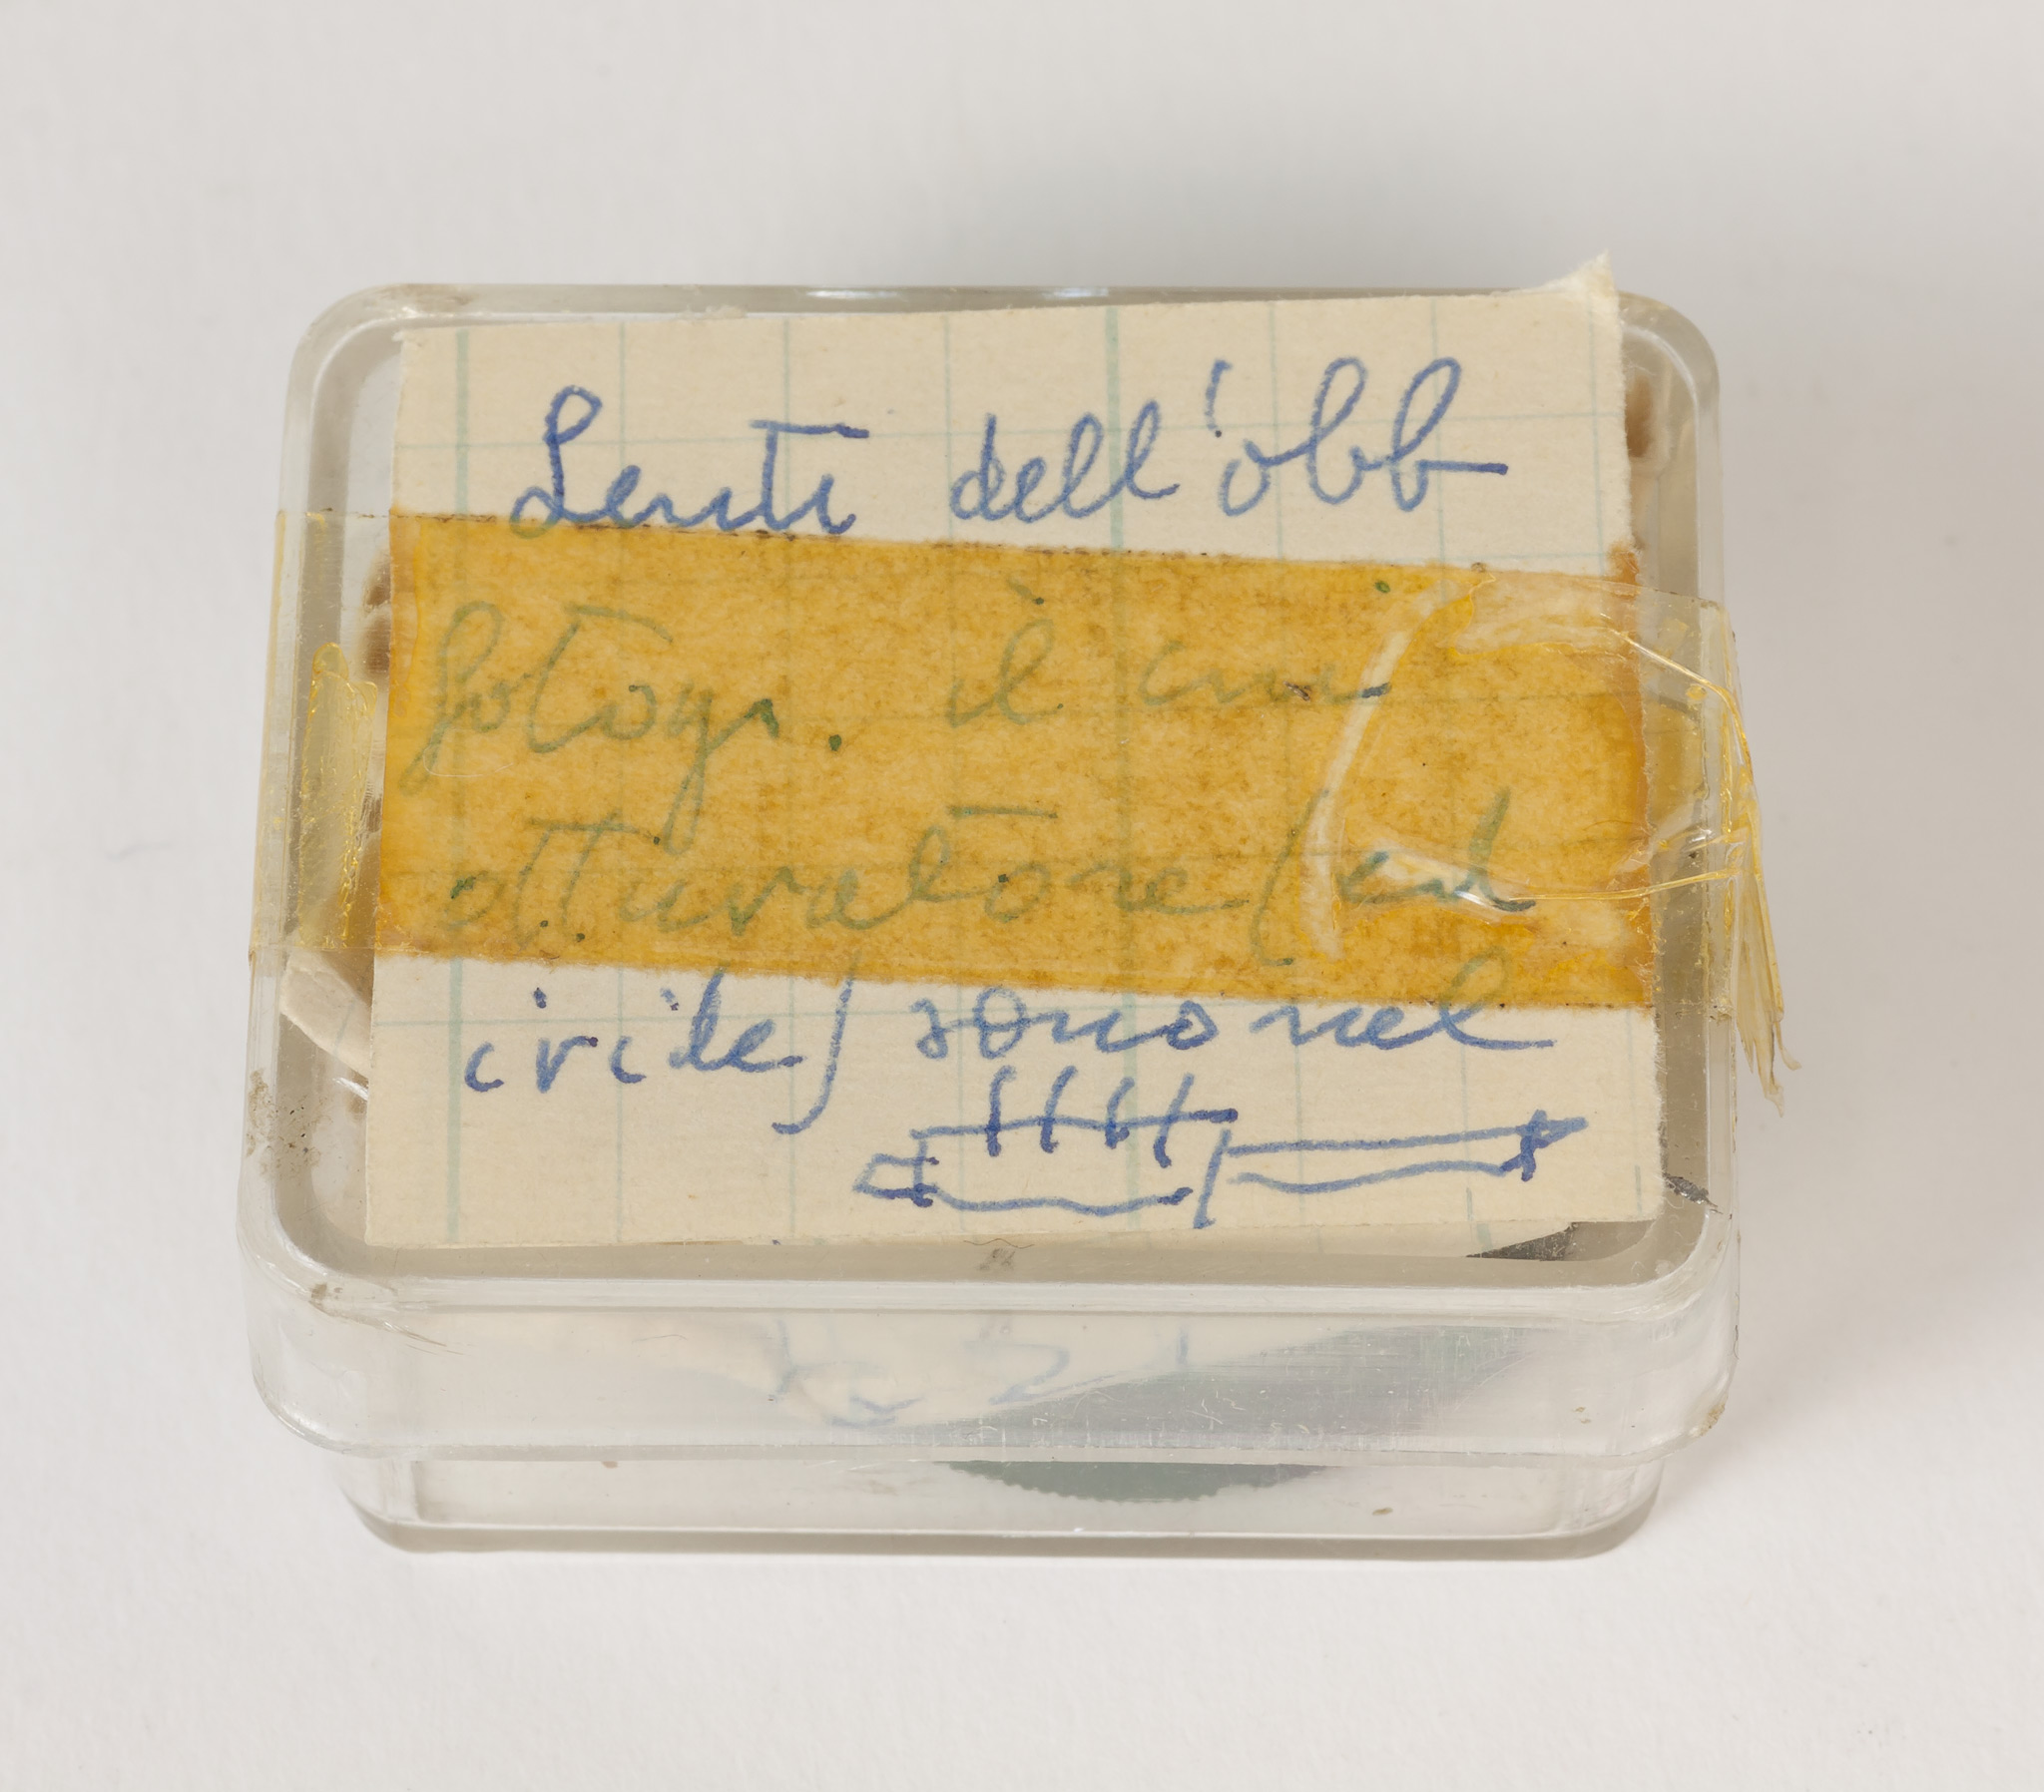 Lenti dell'obb
fotogr. il cui
otturatore (ed
iride) sono nel